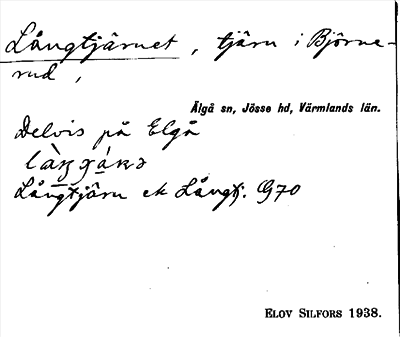 Långtjärnet, tjärn i Björne-
rud,
Älgå sn, Jösse hd, Värmlands län.
Delvis på Elgå
Långtjärn ek Långtj. G70
ELOV SILFORS 1938.